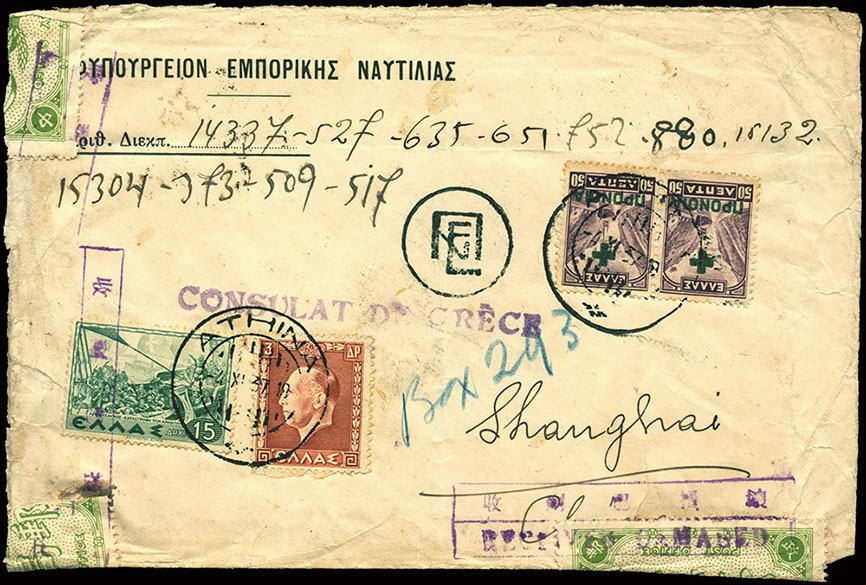 ΥΠΟΥΡΓΕΙΟΝ ΕΜΠΟΡΙΚΗΣ ΝΑΥΤΙΛΙΑΣ
ριθ. Διεκπ. 14337-527-635-651-752-880, 15132.
15304-373-509-517
50 ΛΕΠΤΑ 50 ΛΕΠΤΑ
ΠΡΟΝΟΙΑ ΠΡΟΝΟΙΑ
ΕΛΛΑΣ ΕΛΛΑΣ
CONSULAT DE GRÈCE
ATHINAI
XI 37
3 ΔΡ
ΕΛΛΑΣ ΔΡΧ 15
ΕΛΛΑΣ
Box 293
Shanghai
收
RECEIVED DAMAGED
POST OFFICE